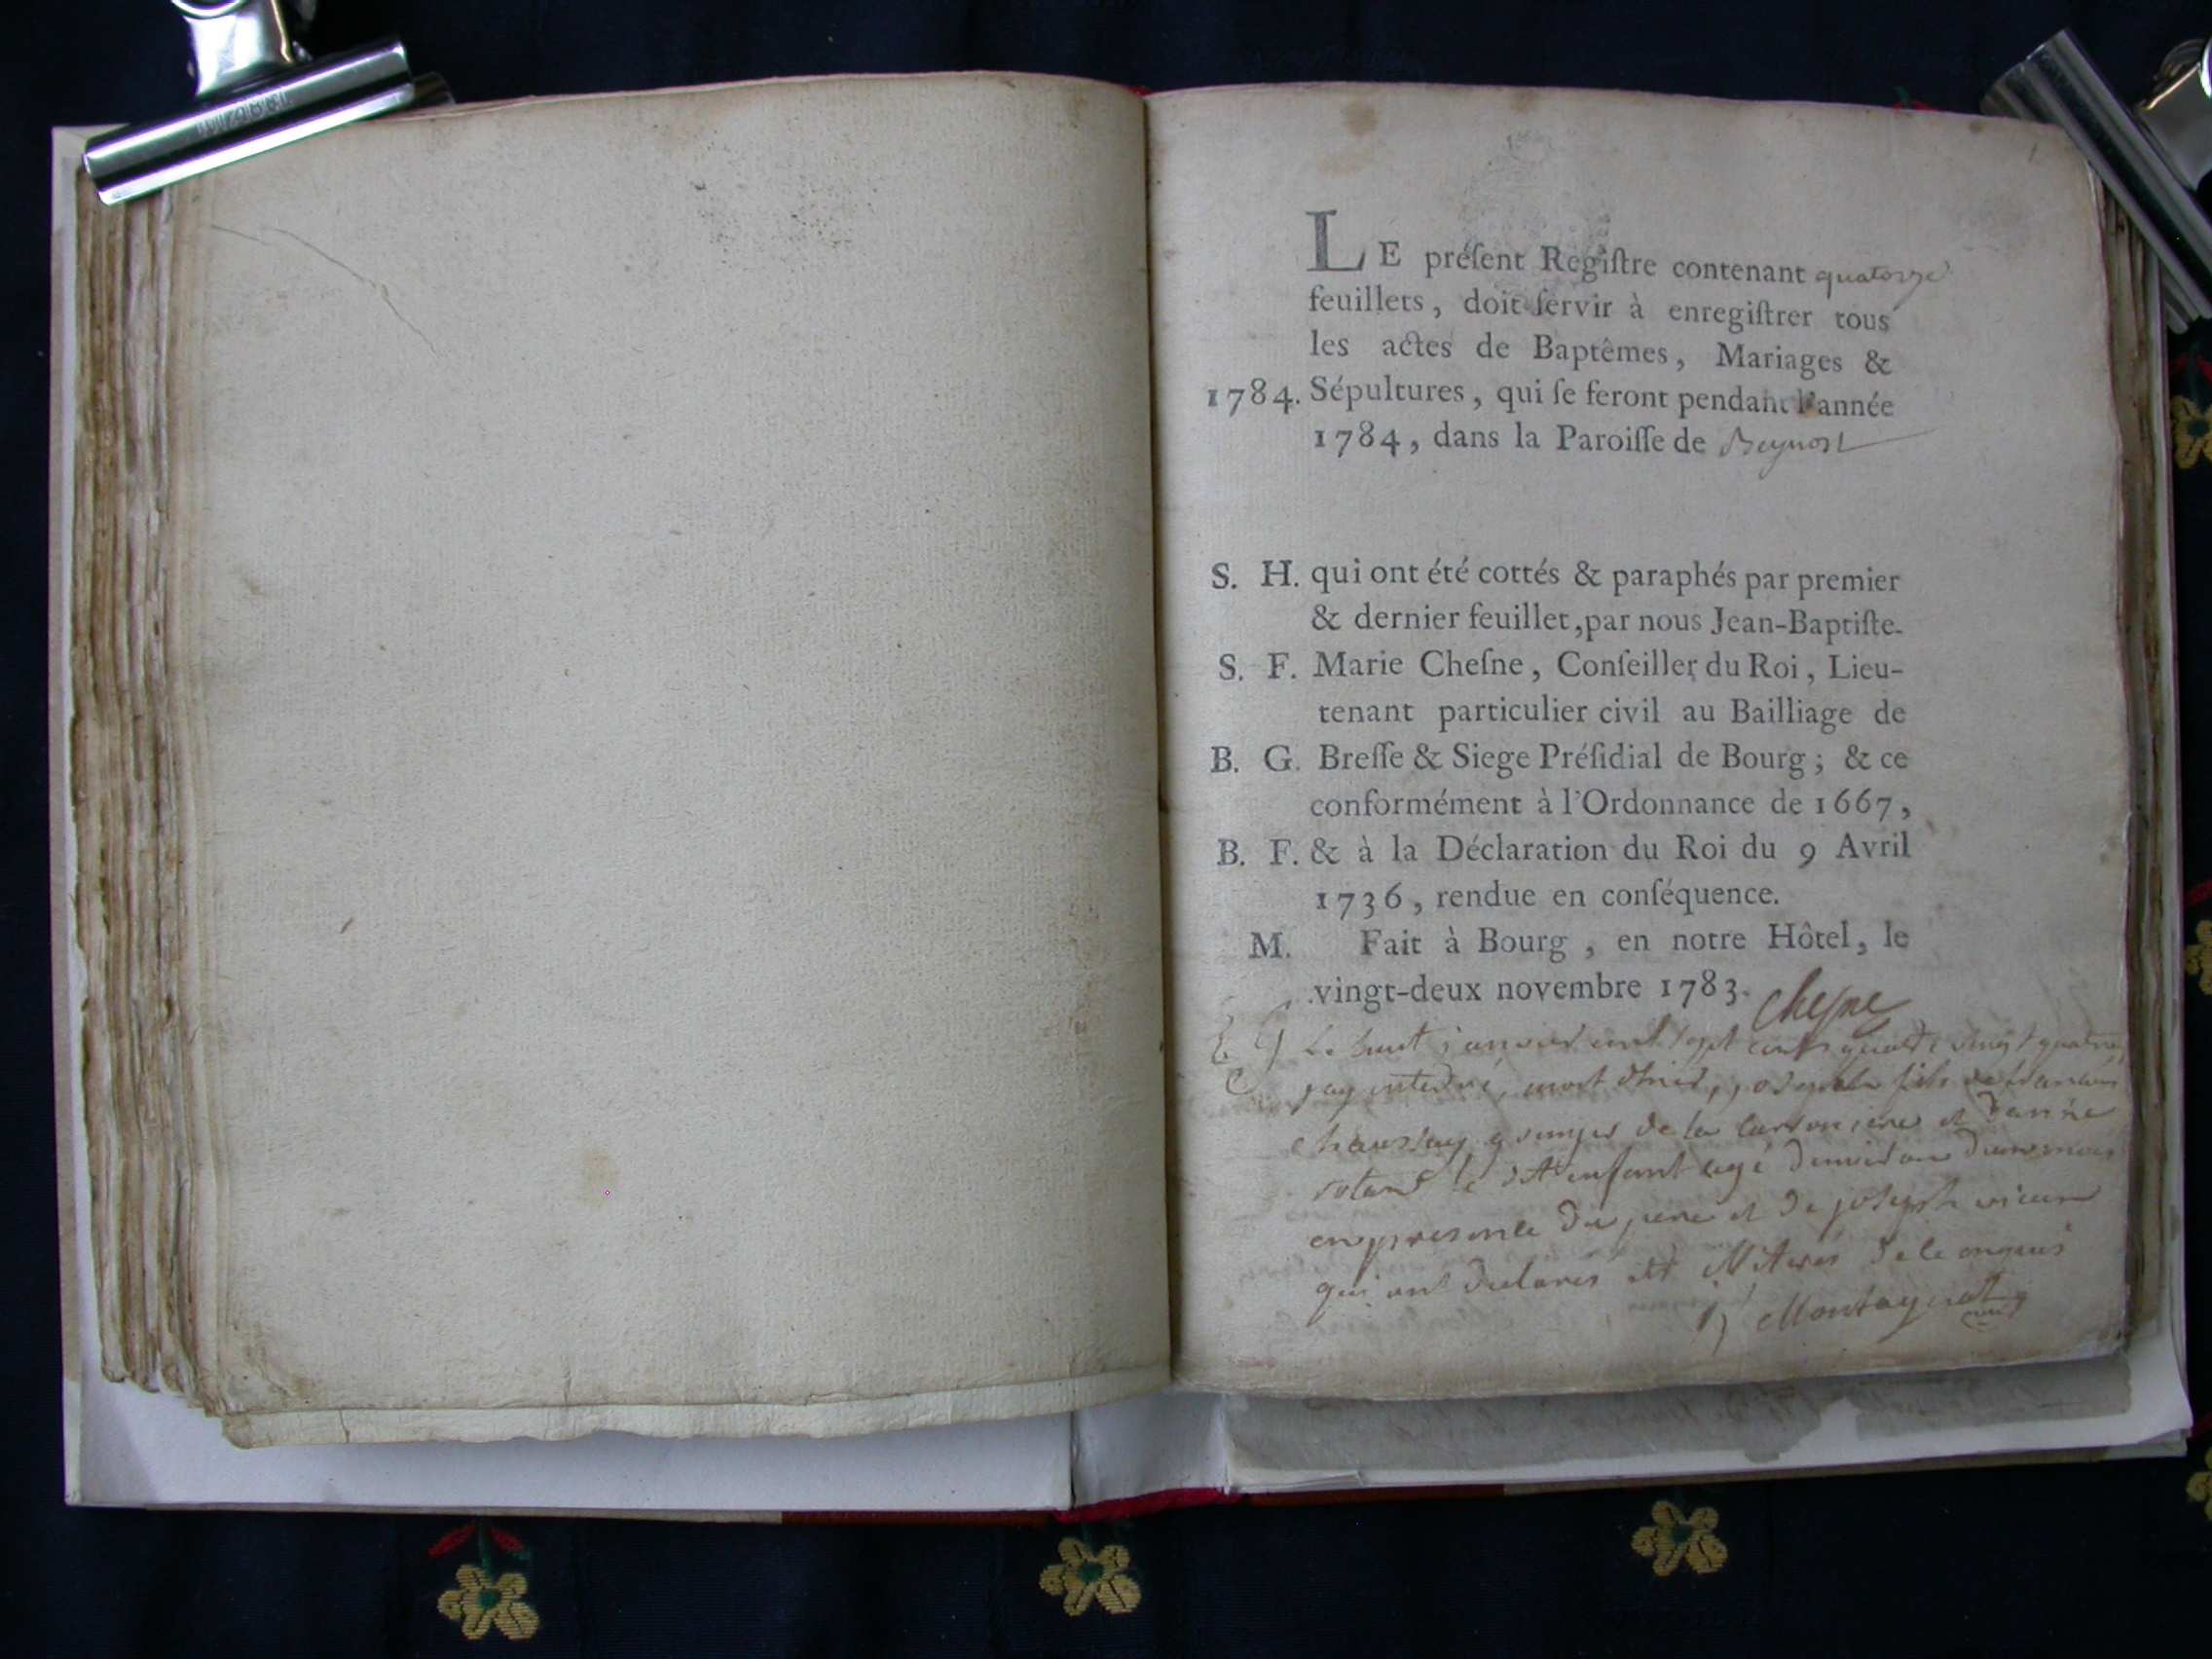 LE préſent Regiſtre contenant quatorze
feuillets, doit ſervir à enregiſtrer tous
les actes de Baptêmes, Mariages &
1784. Sépultures, qui ſe feront pendant l'année
1784, dans la Paroiſſe de Beynost
S. H. qui ont été cottés & paraphés par premier
& dernier feuillet, par nous Jean-Baptiſte-
S. F. Marie Cheſne, Conſeiller du Roi, Lieu-
tenant particulier civil au Bailliage de
B. G. Breſſe & Siege Préſidial de Bourg; & ce
conformément à l'Ordonnance de 1667,
B. F. & à la Déclaration du Roi du 9 Avril
1736, rendue en conſéquence.
M. Fait à Bourg, en notre Hôtel, le
vingt-deux novembre 1783. Chesne
Le huit janvier mil sept cents quatre vingt quatre
jay enterré, mort hier, joseph fils de francois
granger de la et d'anne
le dit enfant agé d'environ
en presence du pere et de joseph
qui ont declarés de ce enquis
Montagnat